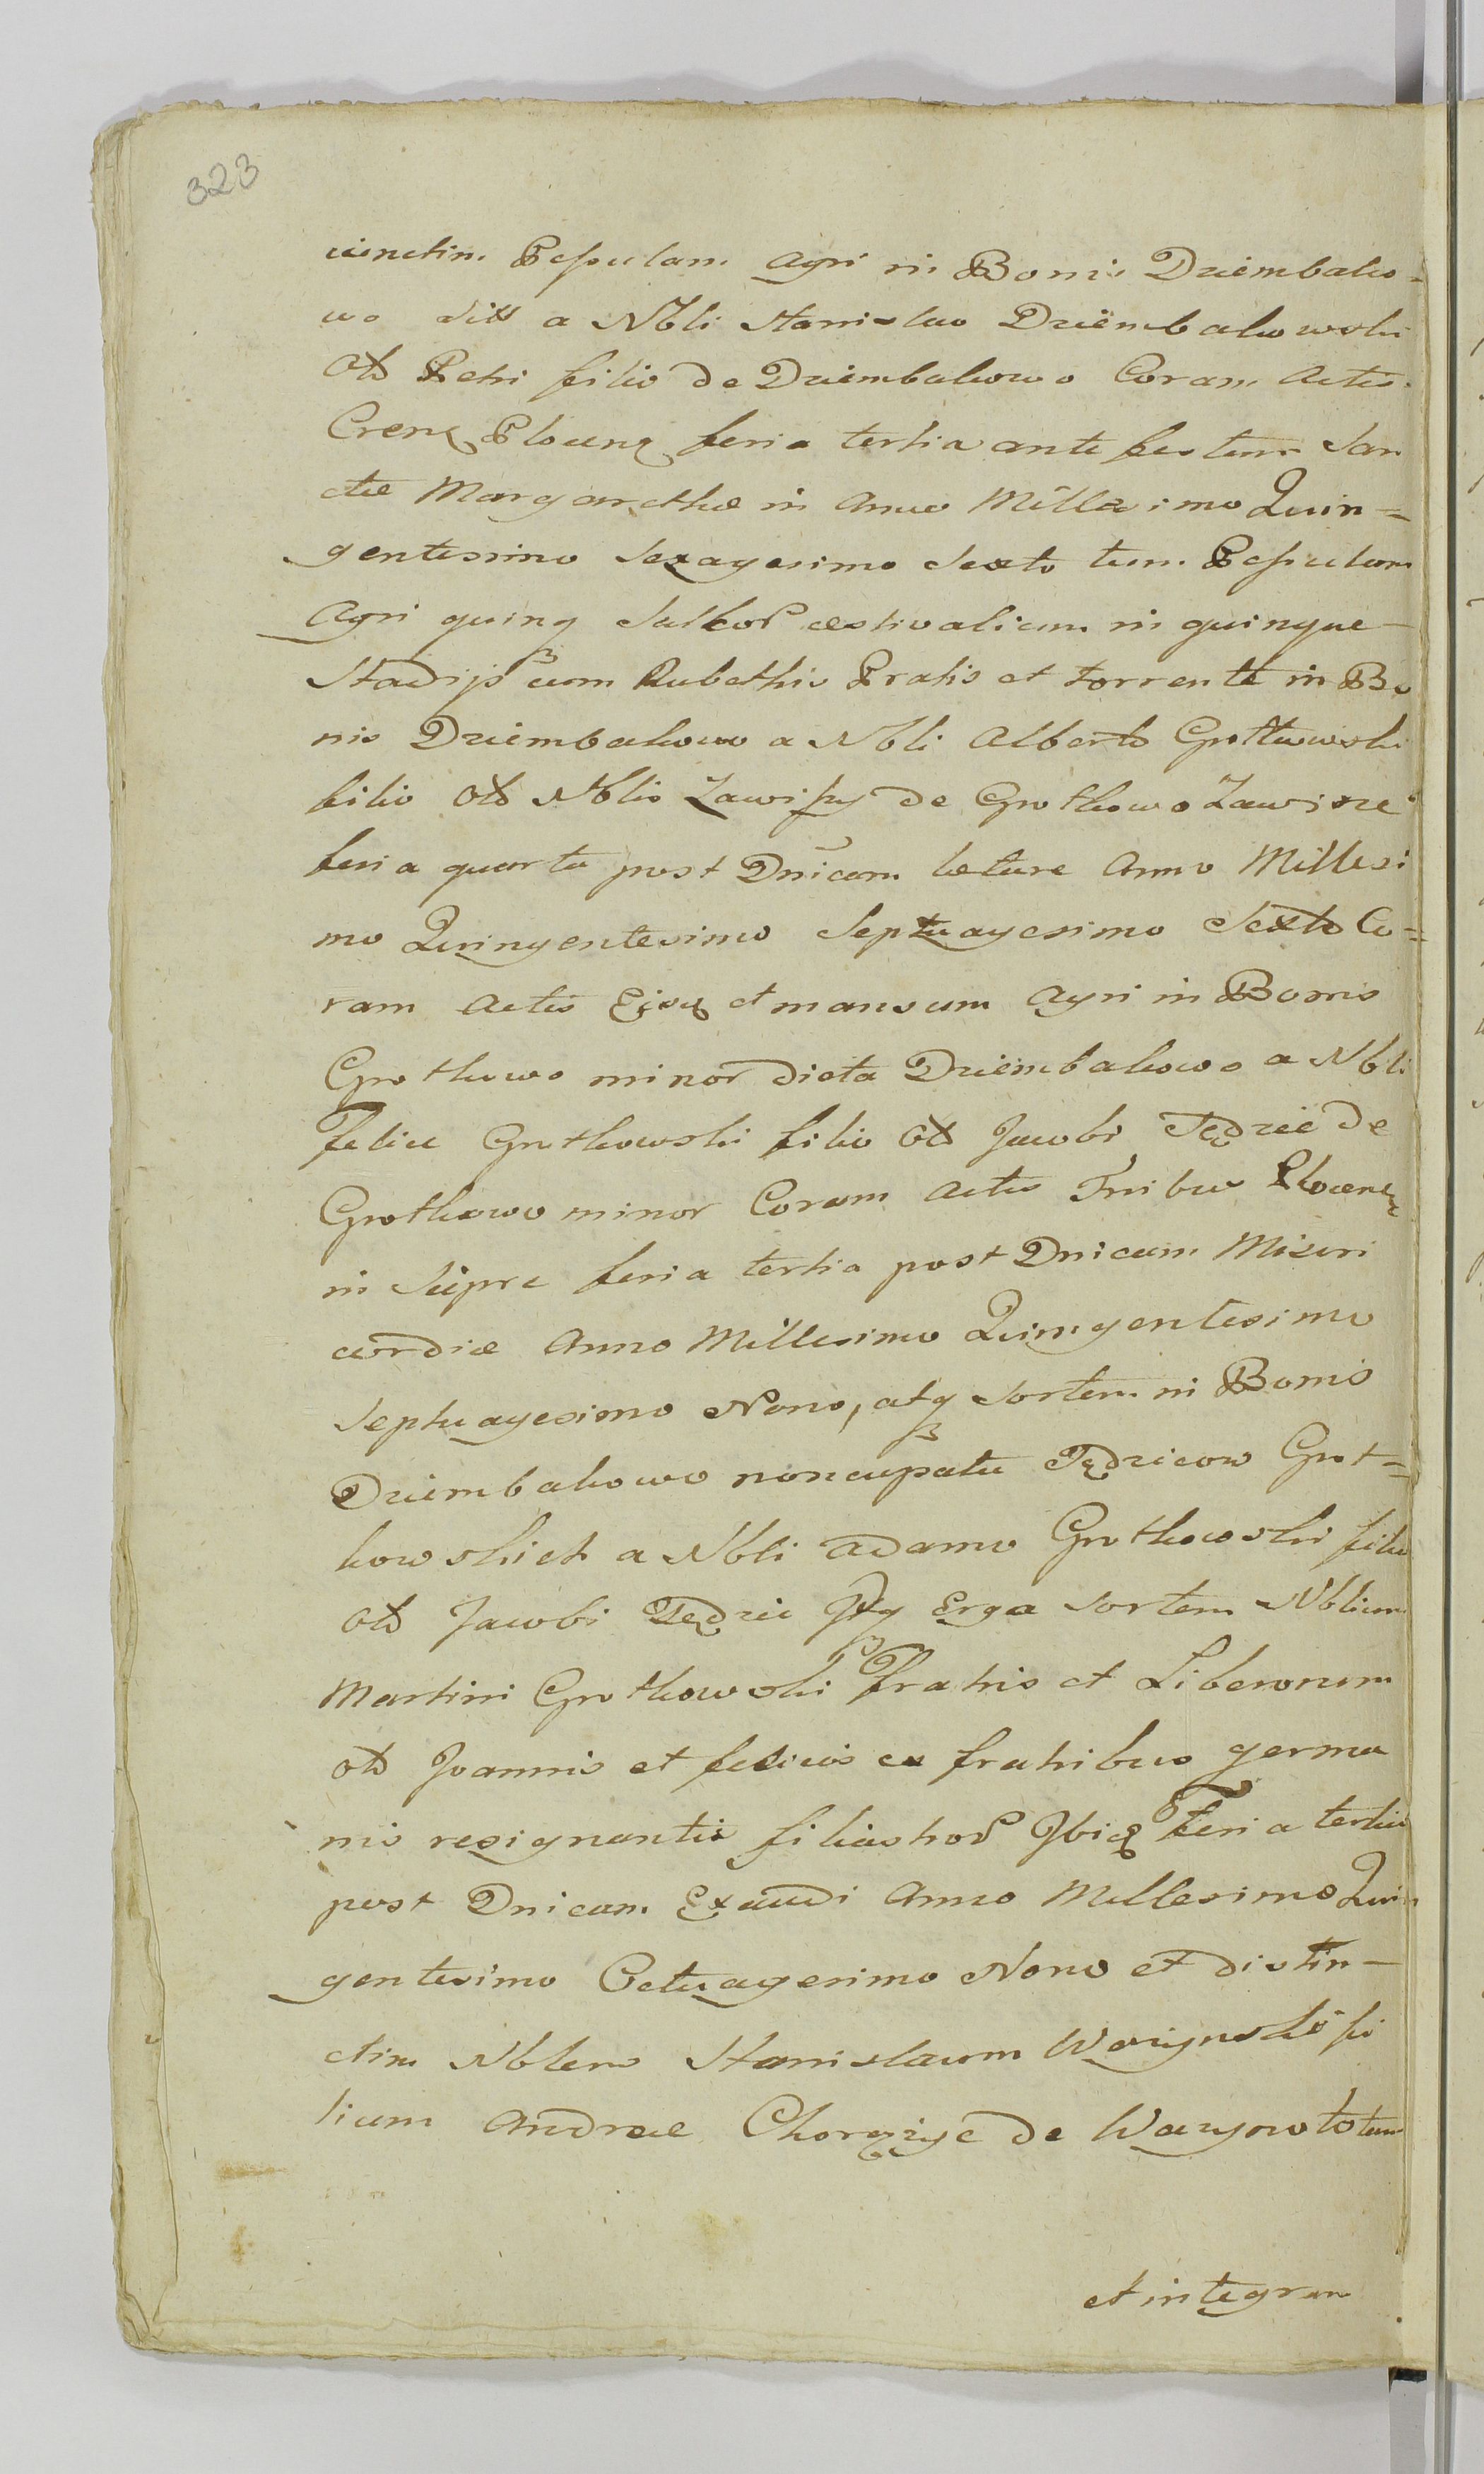 323
Pessulam Agri in Bonis Dziembako-
wo sitt a Nbli Stanislao Dziembakowski
Olb Petri filio de Dziembakowo Coram Actis
Crenq Plocenq feria tertia ante festum San
ctae Margarethae in Anno Millesimo Quin=
gentesimo Sexagesimo Sexto tum Pessulam
Agri quinq Sulcor aestivalium in quinque
Stadijs cum Rubethis Pratis et torrente in Bo
nis Dziembakowo a Nbli Alberto Grotkowski
filio Olb Nblis Zawissy de Grotkowo Zawisze
feria quarta post Dnicam laetare Anno Millesi
mo Quingentesimo Septuagesimo Sexto Co=
ram Actis Ejsq et mansum Agri in Bonis
Grotkowo minor dicta Dziembakowo a Nbli
Felice Grotkowski filio Olb Jacobi Tędzic de
Grotkowo minor Coram Actis Tribus Plocenq
in Sierpc feria tertia post Dnicam Miseri
cordiae Anno Millesimo Quingentesimo
Septuagesimo Nono, atq Sortem in Bonis
Dziembakowo noncupata Tędzicow Grot=
kowskich a Nbli Adamo Grotkowski filio
Olb Jacobi Tędzic Erga Sortem Nblium
Martini Grotkowski Fratris et Liberorum
Olb Joannis et felicis ex fratribus germa
nis resignantis filiastror Ibiq Feria tertia
post Dnicam Exaudi Anno Millesimo Quin
gentesimo Octuagesimo Nono et distin-
ctim Nblem Stanislaum fi
lium Andreae Chorązyc de totam
et integram